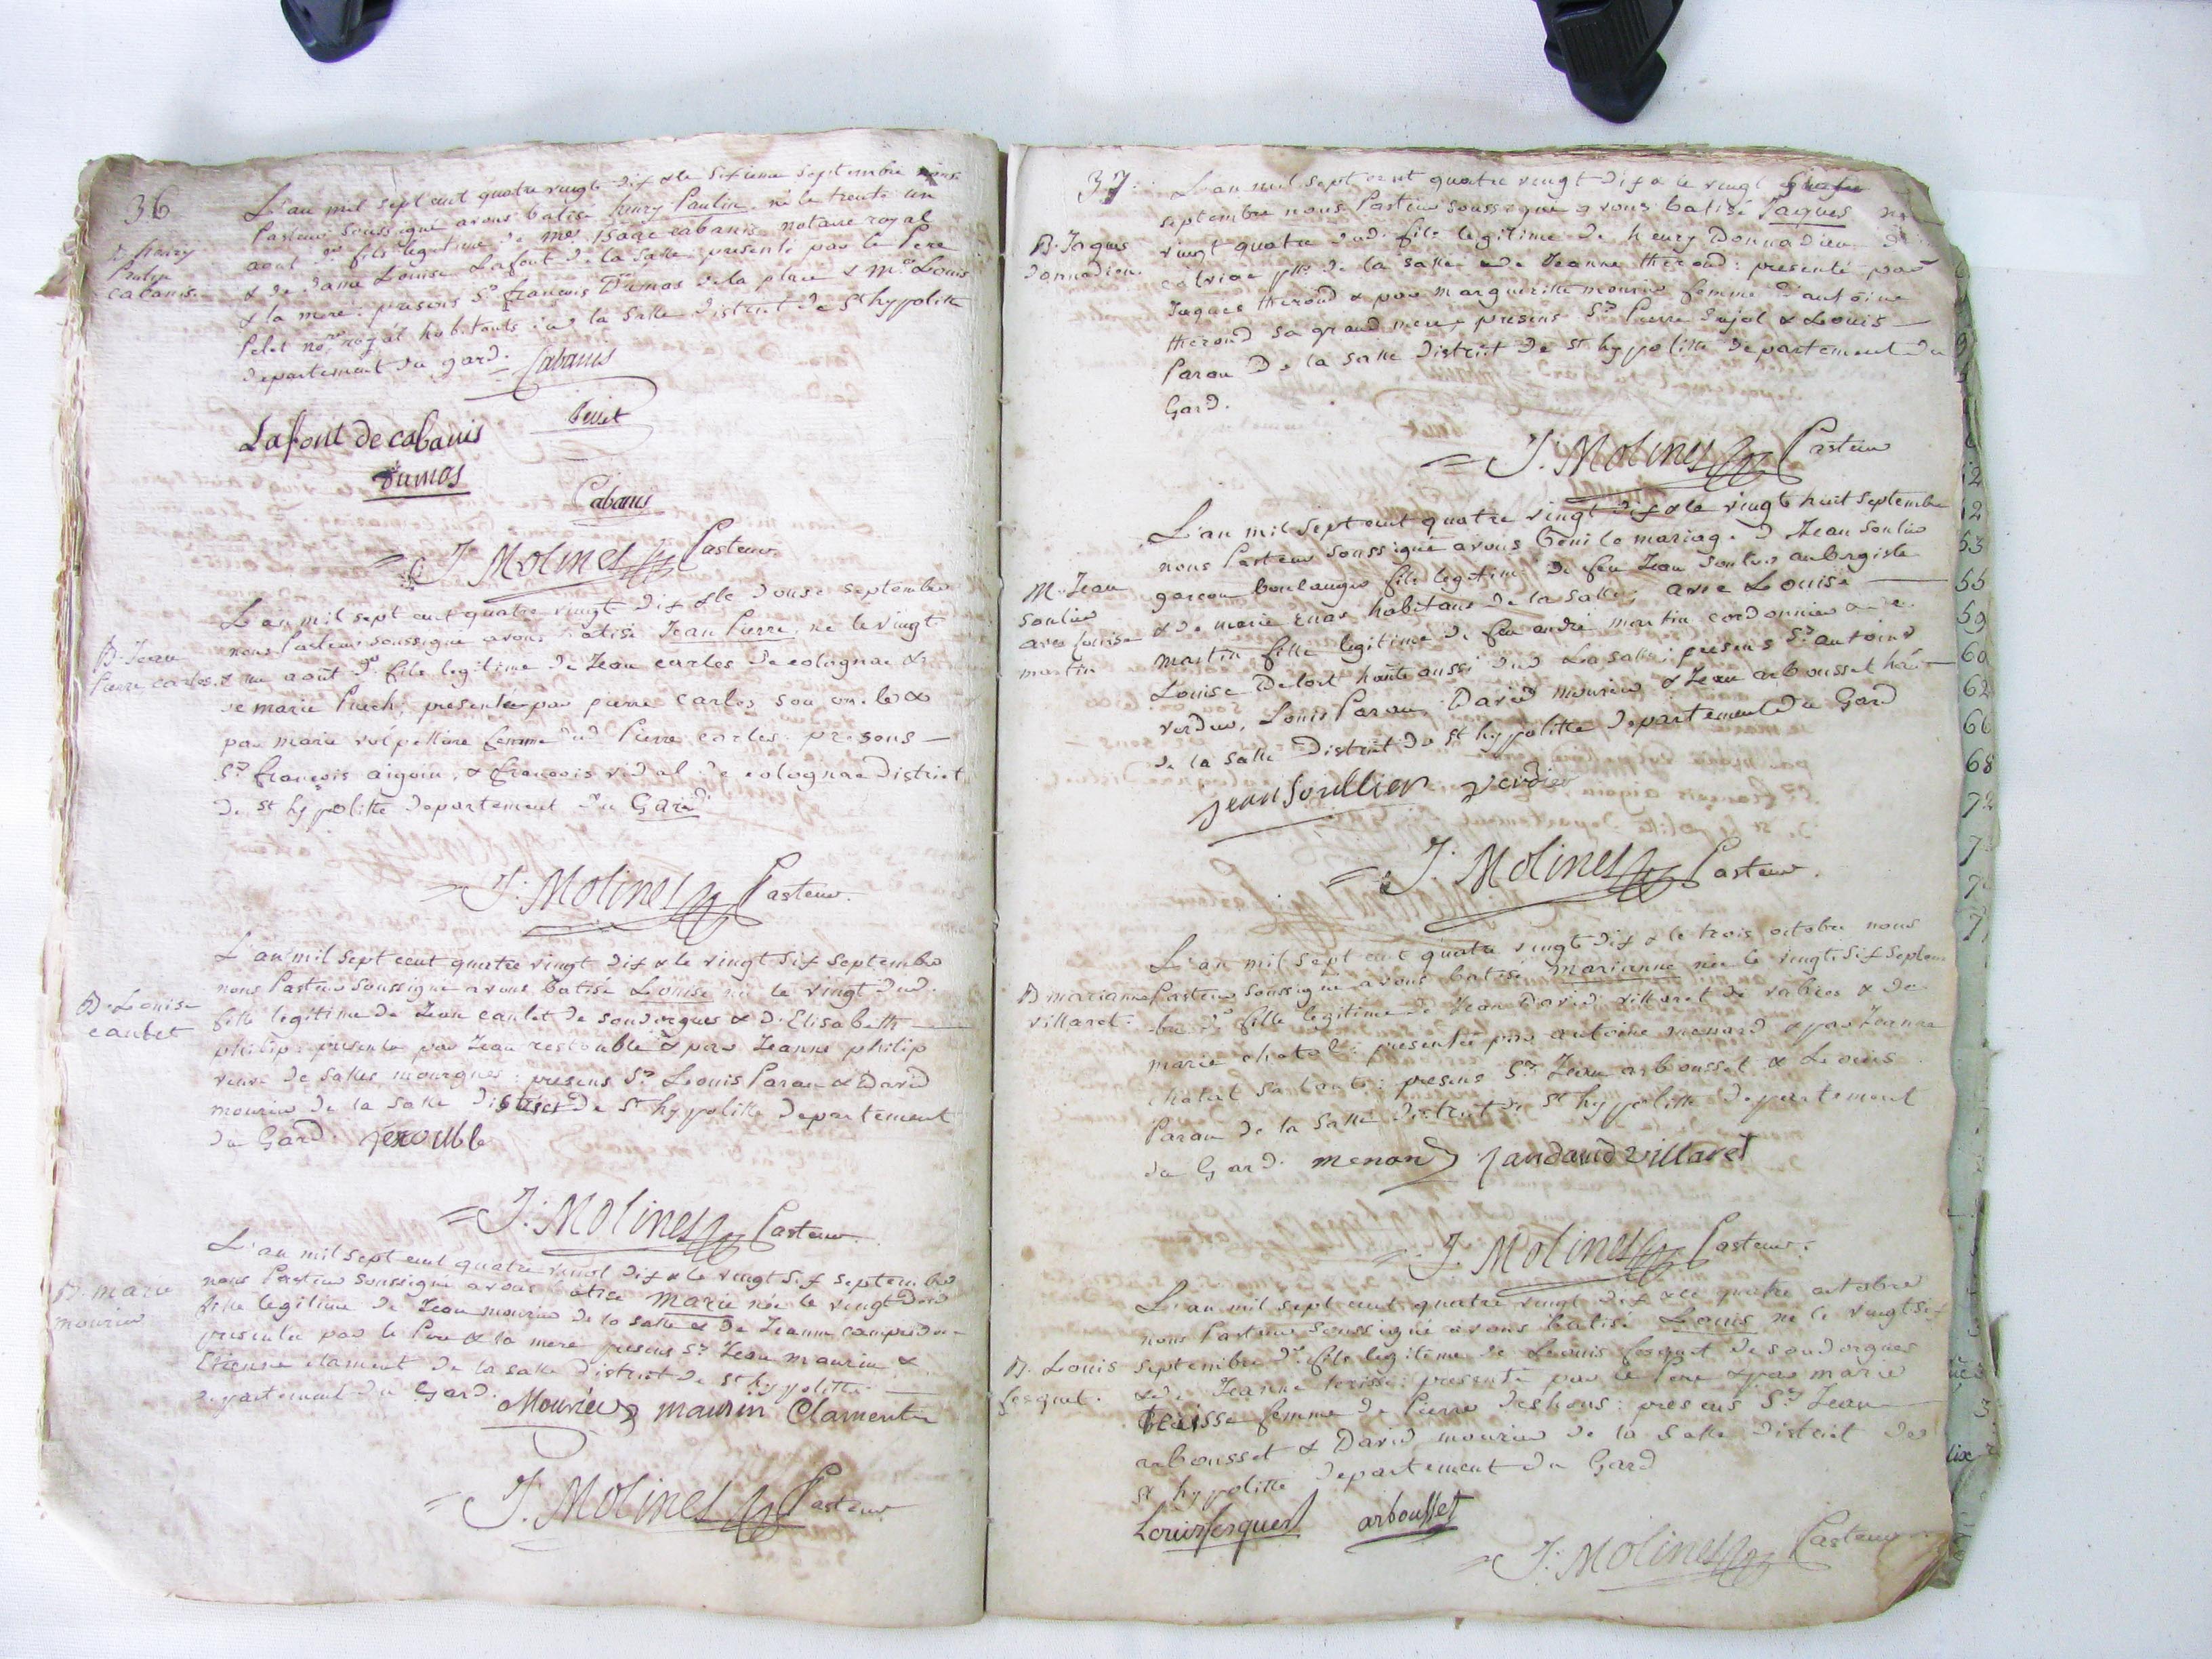 36
L'an mil sept cent quatre vingt dix & le sixieme septembre nous
Pasteur soussigné avons batisé henry Paulin né le trente un
aout dr fils legitime de me Isaac cabanis notaire royal
& de dame Louise Lafont de la salle presenté par le Pere
& la mere: presens Sr françois Dumas de la place & Me Louis
Pelet nore royal habitants de la Salle District de St hypolitte
departement du gard. Cabanis
B. henry
Paulin
cabanis.
Lafont de cabanis
Dumas
Cabanis
J. Molines Pasteur.
L'an mil sept cent quatre vingt dix & le douse septembre
nous Pasteur soussigné avons batisé Jean Pierre né le vingt
B. Jean
Pierre carles.
& un août dr fils legitime de Jean carles de colognac &
de marie Puech; presenté par pierre carles son oncle &
par marie volpelliere femme dud Pierre carles: presens
Sr françois aigoin, & françois vidal de colognac District
de St hypolitte departement du Gard
J. Molines Pasteur.
L'an mil sept cent quatre vingt dix & le vingt six septembre
nous Pasteur soussigné avons batisé Louise née le vingt dud.
B. Louise
caulet
fille legitime de Jean caulet de soudorgues & d'Elisabeth
philip: presentée par Jean restouble & par Jeanne philip
veuve de salles mourgues: presens Sr Louis Parau & David
mourier de la salle District de St hypolitte departement
du Gard.
J. Molines Pasteur.
L'an mil sept cent quatre vingt dix & le vingt six septembre
nous Pasteur soussigné avons batisé Marie née le vingt dud
B. marie
mourier
fille legitime de Jean mourier de la salle & de Jeanne
presentée par le Pere & la mere presens Sr Jean maurin &
Etienne clament de la salle District de St hypolitte
departement du Gard. Mourier maurin Clament
J. Molines Pasteur
37.
L'an mil sept cent quatre vingt dix & le vingt
septembre nous Pasteur soussigné avons batisé Jaques né
B. Jaques
donnadieu
vingt quatre dud. fils legitime de henry Donnadieu de
de la salle & de Jeanne theroud: presenté par
Jaques theroud & par margueritte mourier femme d'antoine
theroud sa grand mere presens Sr Pierre Pujol & Louis
Parau de la salle District de St hypolitte departement du
Gard.
J. Molines Pasteur
L'an mil sept cent quatre vingt dix & le vingt huit septembre
nous Pasteur soussigné avons beni le mariage de Jean soulier
M. Jean
soulier
avec Louise
martin
garçon boulanger fils legitime de feu Jean soulier aubergiste
& de marie Enas habitans de la salle; avec Louise
martin fille legitime de feu andré martin cordonnier & de
Louise Deleuze habte aussi dud Lasalle; presens Sr antoine
verdier, Louis Parau, David mourier & Jean arbousset habt
de la salle District de St hypolitte departement du Gard
jean Soullier verdier
J. Molines Pasteur.
L'an mil sept cent quatre vingt dix & le trois octobre nous
B marianne
villaret.
Pasteur soussigné avons batisé marianne née le vingt six septem
bre dr fille legitime de Jean David villaret de vabres & de
marie chatal: presentée par antoine menard & par Jeanne
chatal sa tante: presens Srs Jean arbousset & Louis
Parau de la salle District de St hypolitte departement
du Gard. menard jandavid villaret
J. Molines Pasteur.
L'an mil sept cent quatre vingt dix & le quatre octobre
nous Pasteur soussigné avons batisé Louis né le vingt six
B. Louis
fesquet.
septembre dr fils legitime de Louis fesquet de soudorgues
& de Jeanne: presenté par le Pere & par marie
femme de Pierre deshons: presens Sr Jean
arbousset & David mourier de la Salle District de
St hypolitte departement du Gard
Louis fesquet arbousset
J. Molines Pasteur